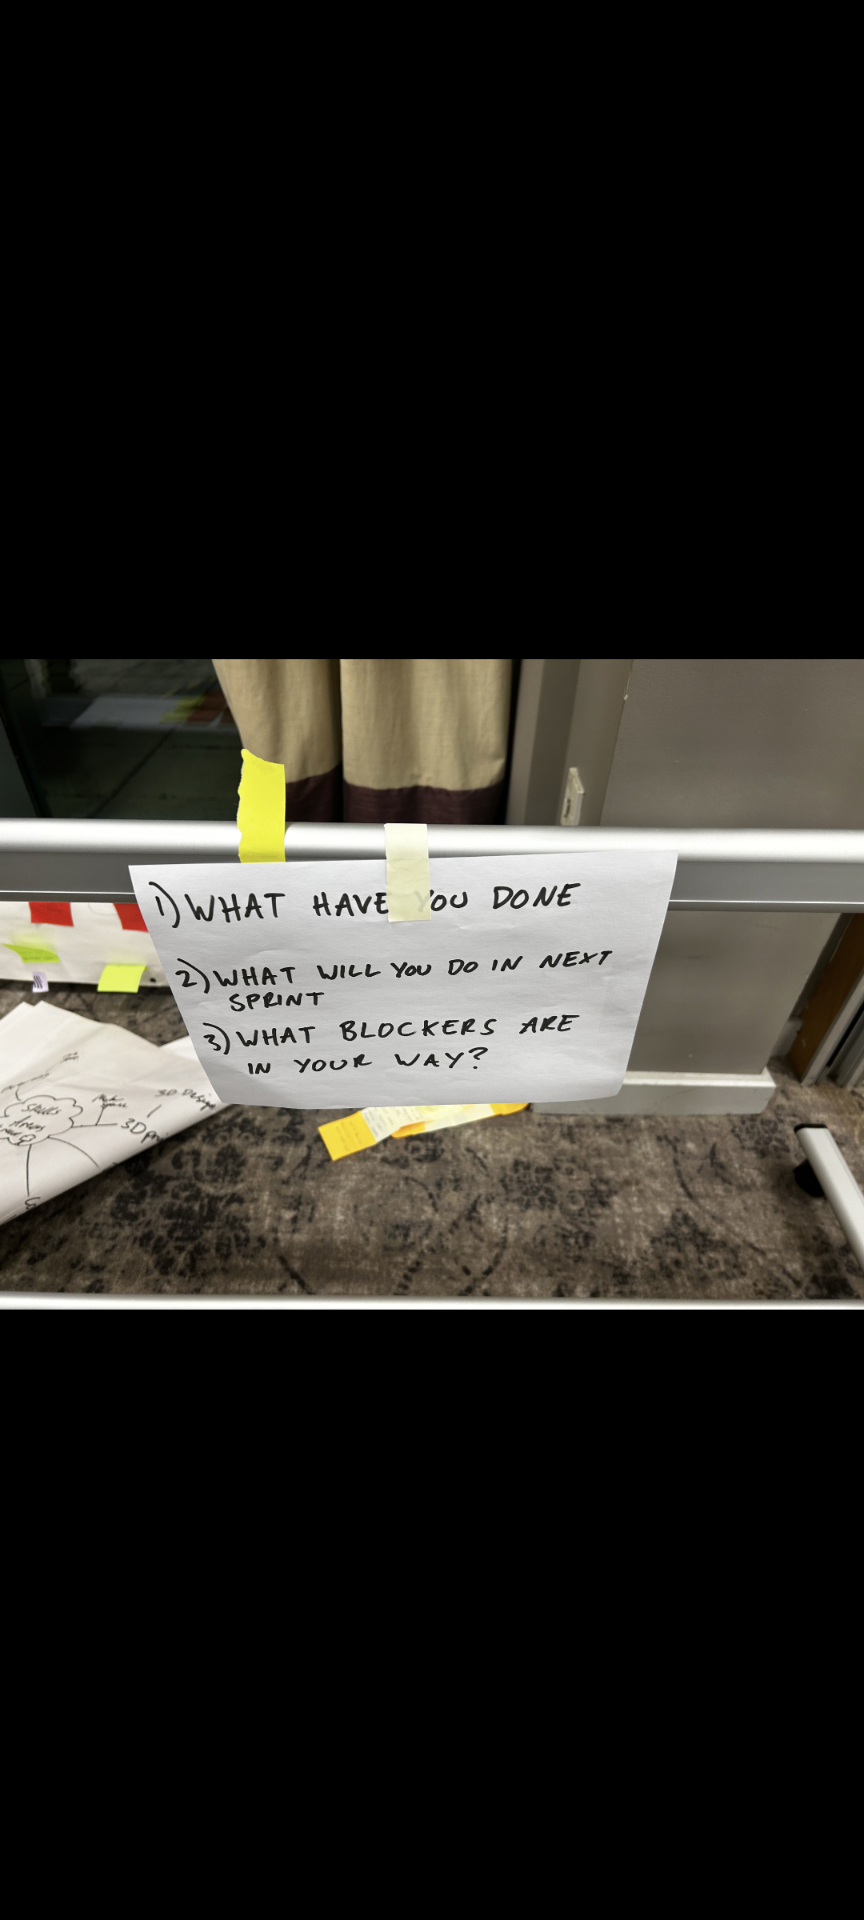 1) WHAT HAVE YOU DONE
2) WHAT WILL YOU DO IN NEXT
SPRINT
3) WHAT BLOCKERS ARE
IN YOUR WAY?
3D Design
3D